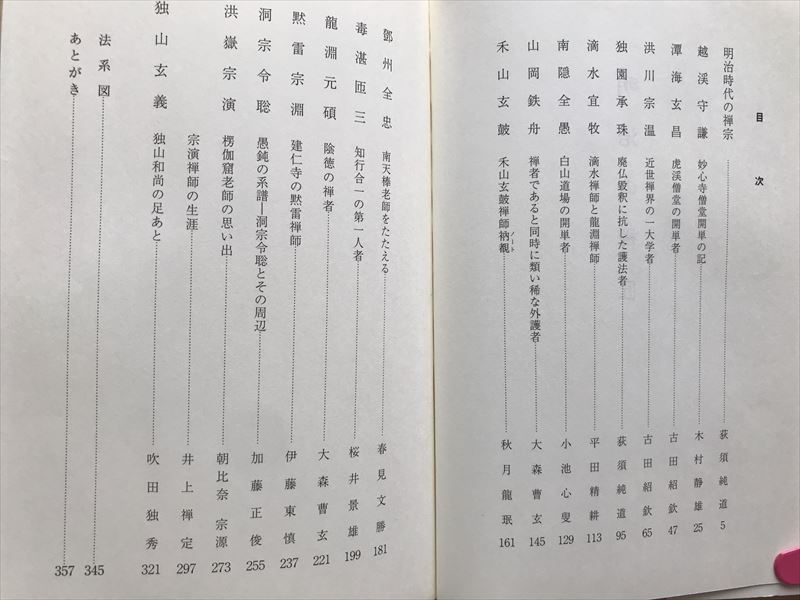 目次
明治時代の禅宗 荻須純道 5
越渓守謙 妙心寺僧堂開単の記 木村静雄 25
潭海玄昌 虎渓僧堂の開単者 古田紹欽 47
洪川宗温 近世禅界の一大学者 古田紹欽 65
独園承珠 廃仏毀釈に抗した護法者 荻須純道 95
滴水宜牧 滴水禅師と龍淵禅師 平田精耕 113
南隠全愚 白山道場の開単者 小池心叟 129
山岡鉄舟 禅者であると同時に類い稀な外護者 大森曹玄 145
禾山玄皷 禾山玄皷禅師衲覩ノート 秋月龍珉 161
鄧州全忠 南天棒老師をたたえる 春見文勝 181
毒湛匝三 知行合一の第一人者 桜井景雄 199
龍淵元碩 陰徳の禅者 大森曹玄 221
黙雷宗淵 建仁寺の黙雷禅師 伊藤東慎 237
洞宗令聡 愚鈍の系譜―洞宗令聡とその周辺 加藤正俊 255
洪嶽宗演 楞伽窟老師の思い出 朝比奈宗源 273
宗演禅師の生涯 井上禅定 297
独山玄義 独山和尚の足あと 吹田独秀 321
法系図 345
あとがき 357